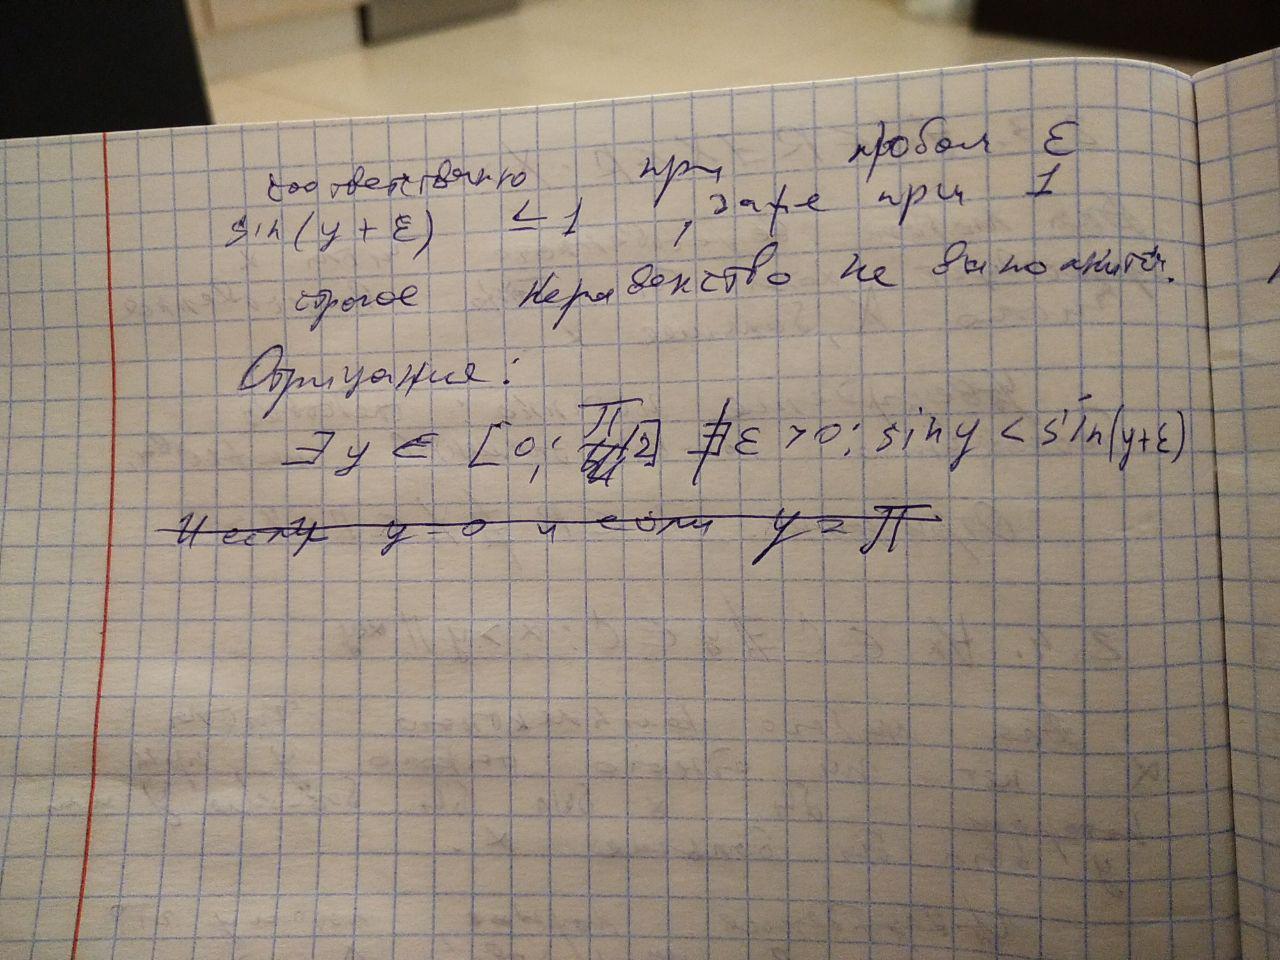 соответственно при любом ε
sin(y + ε) ≤ 1 , даже при 1
строгое неравенство не выполнится.
Отрицания:
∃y ∈ [0; π/2] ∄ε > 0; sin y < sin(y+ε)
И если y = 0 и если y = π